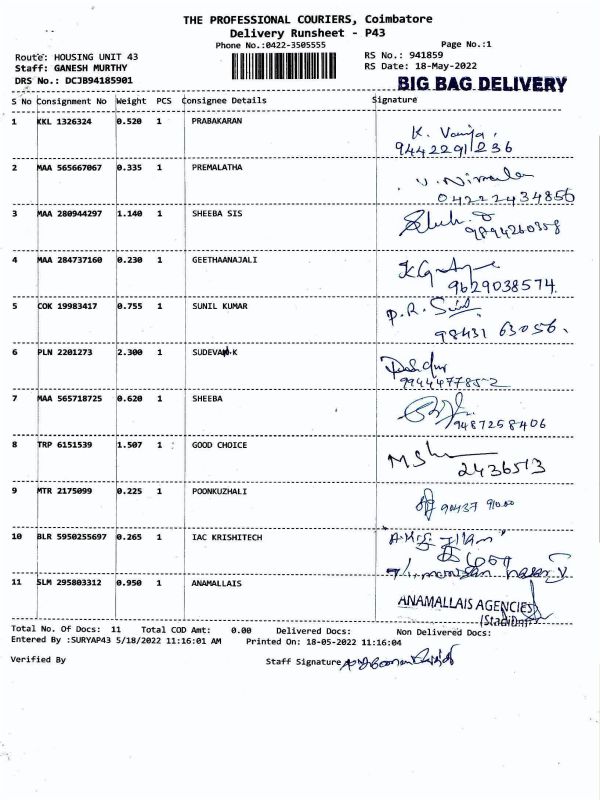 THE PROFESSIONAL COURIERS, Coimbatore
Delivery Runsheet - P43
Phone No.:0422-3505555 Page No.:1
Route: HOUSING UNIT 43 RS No.: 941859
Staff: GANESH MURTHY RS Date: 18-May-2022
DRS No.: DCJB94185901
BIG BAG DELIVERY
S No Consignment No Weight PCS Consignee Details Signature
1 KKL 1326324 0.520 1 PRABAKARAN
9442291236
2 MAA 565667067 0.335 1 PREMALATHA
04222434856
3 MAA 280944297 1.140 1 SHEEBA SIS
9894260358
4 MAA 284737160 0.230 1 GEETHAANAJALI
9629038574.
5 COK 19983417 0.755 1 SUNIL KUMAR
98431 63056.
6 PLN 2201273 2.300 1 SUDEVAN K
9944477852
7 MAA 565718725 0.620 1 SHEEBA
9487258406
8 TRP 6151539 1.507 1 GOOD CHOICE
2436513
9 MTR 2175099 0.225 1 POONKUZHALI
10 BLR 5950255697 0.265 1 IAC KRISHITECH
11 SLM 295803312 0.950 1 ANAMALLAIS
ANAMALLAIS AGENCIES
(Stadium)
Total No. Of Docs: 11 Total COD Amt: 0.00 Delivered Docs: Non Delivered Docs:
Entered By :SURYAP43 5/18/2022 11:16:01 AM Printed On: 18-05-2022 11:16:04
Verified By Staff Signature